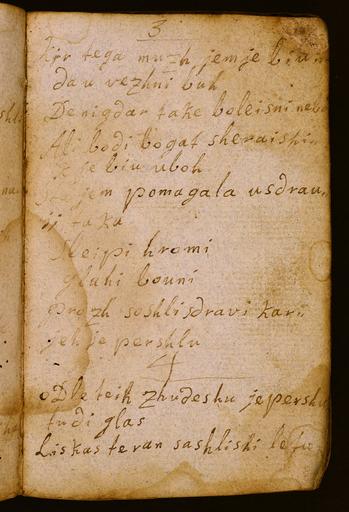 3
Kir tega muzh jemje biu
dau vezhni buh
De nigdar take boleisni nebo
Ali bodi bogat sheraishi
je biu uboh
jem pomagala usdrau
ji taku
Sleipi hromi
gluhi bouni
prozh soshli sdravi kar
jeh je pershlu
4
od le teih zhudesku je pershlu
tudi glas
Liskas teran sashlishi le ta